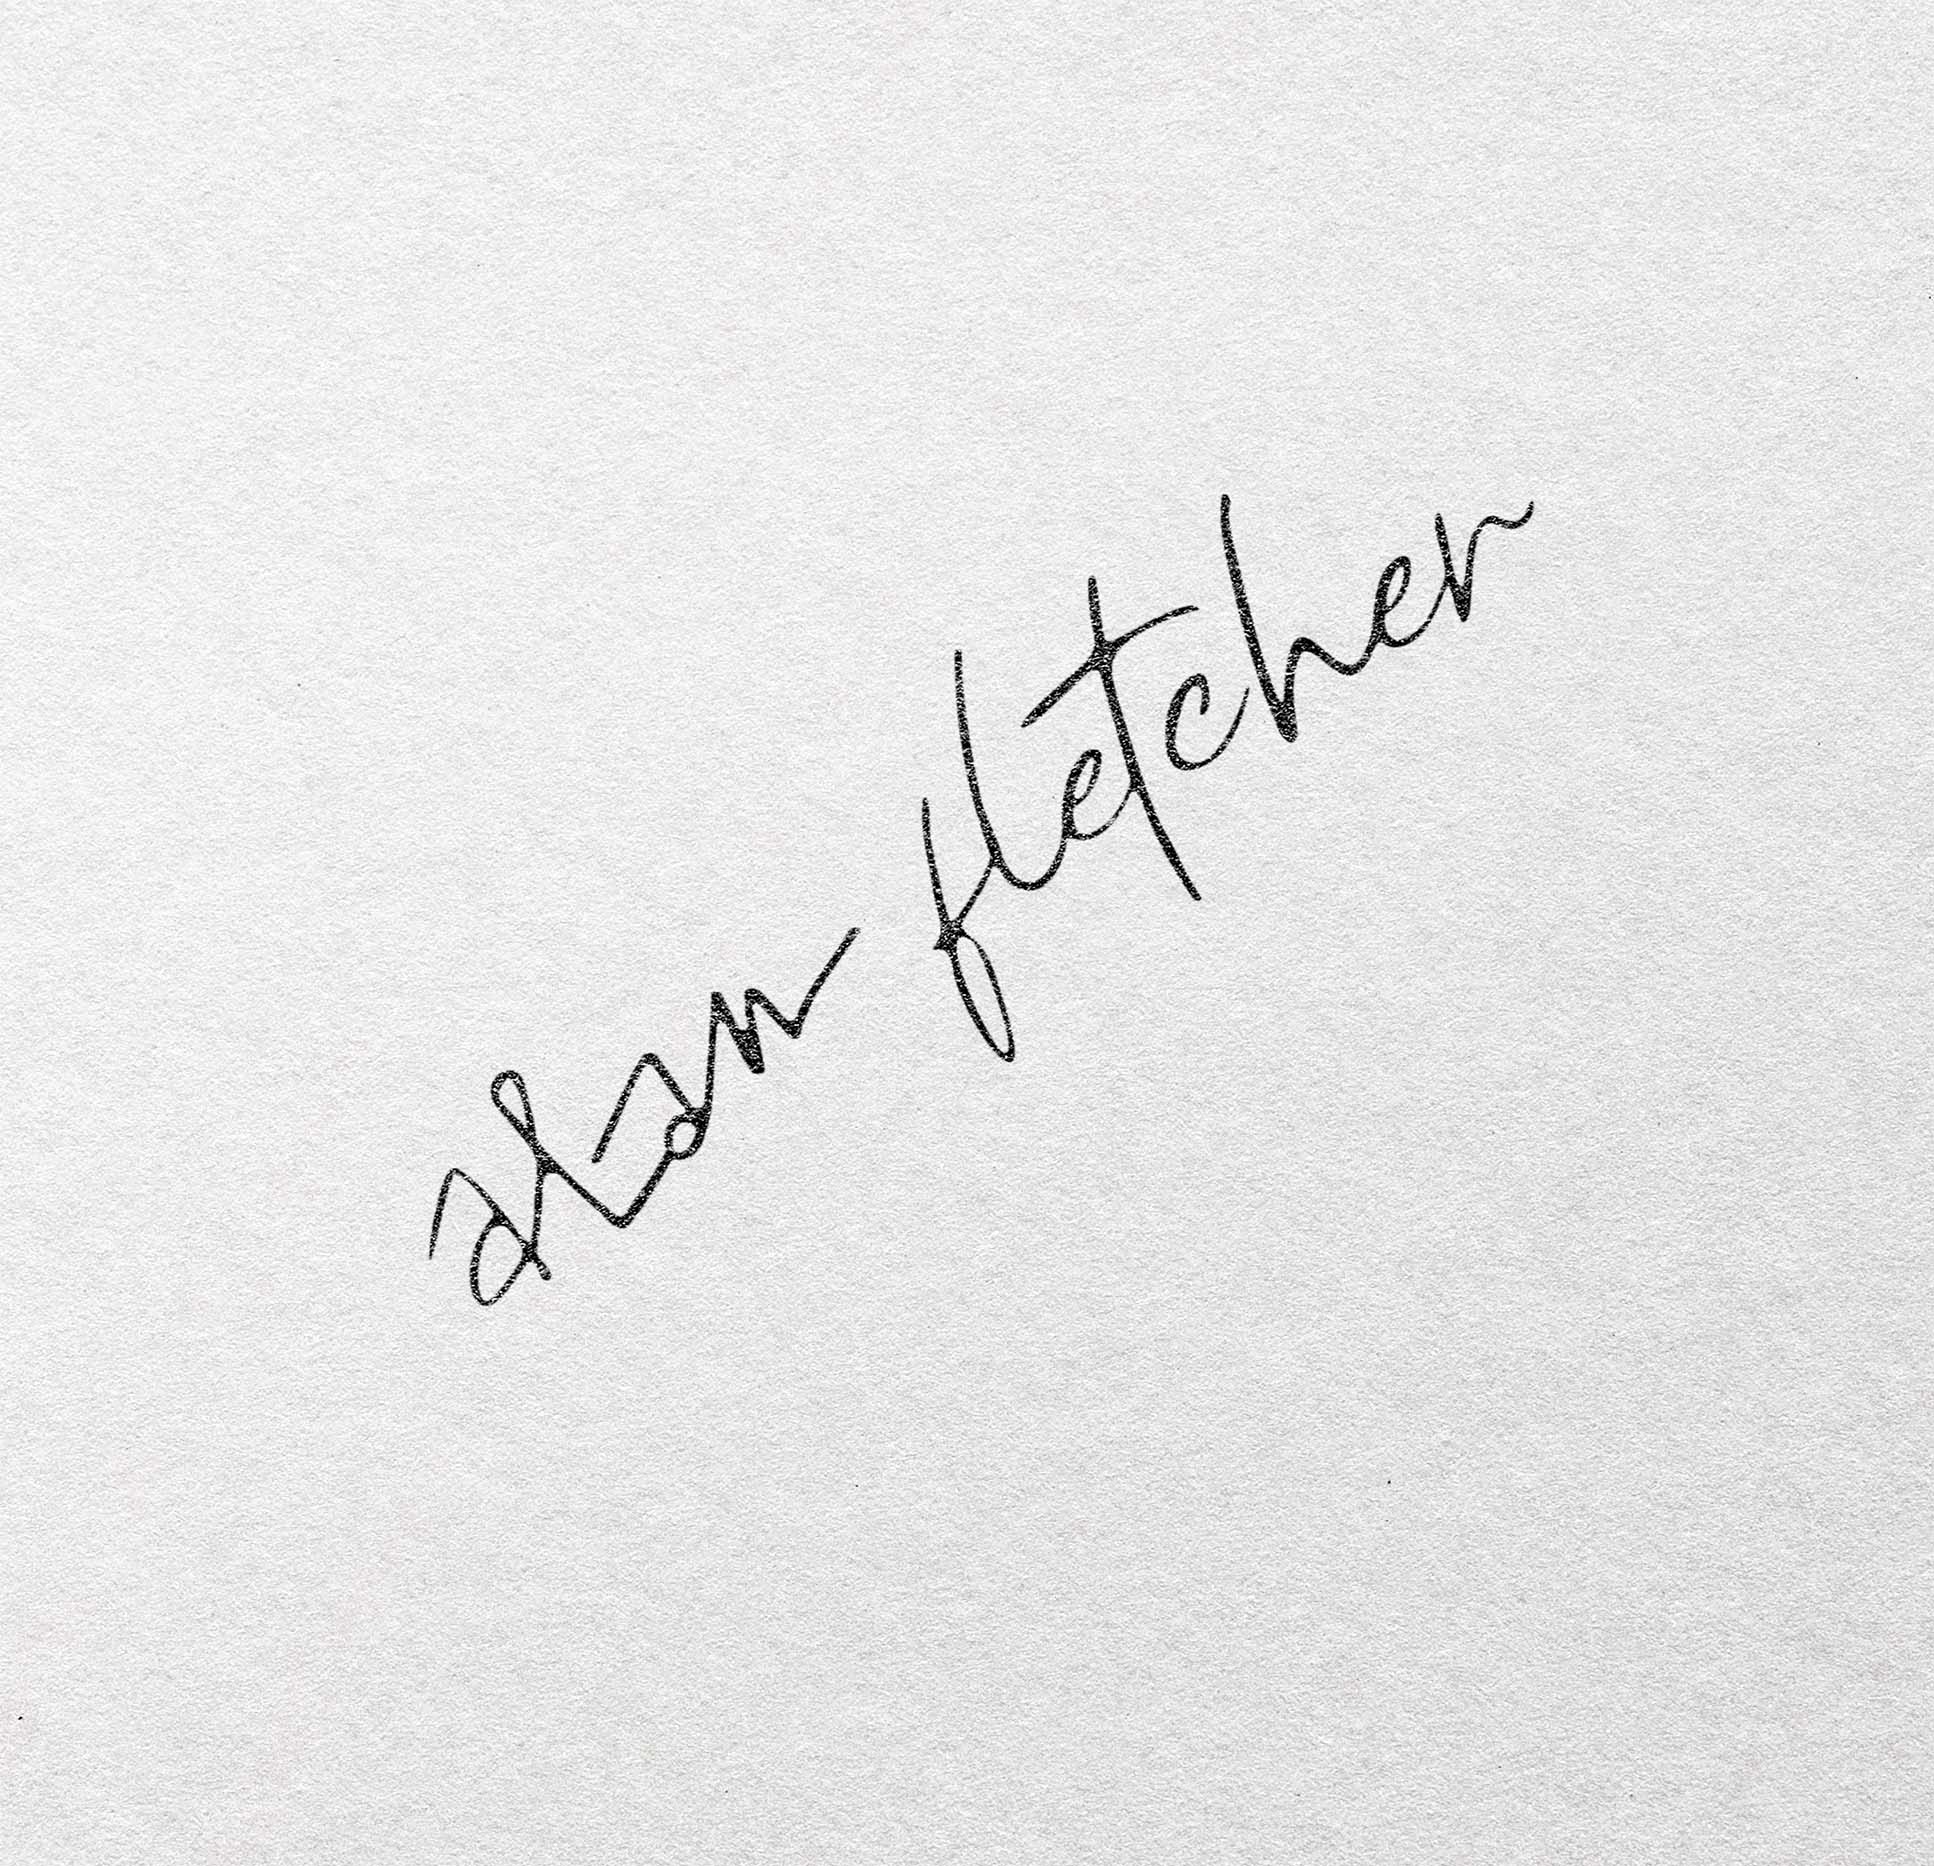 alan fletcher